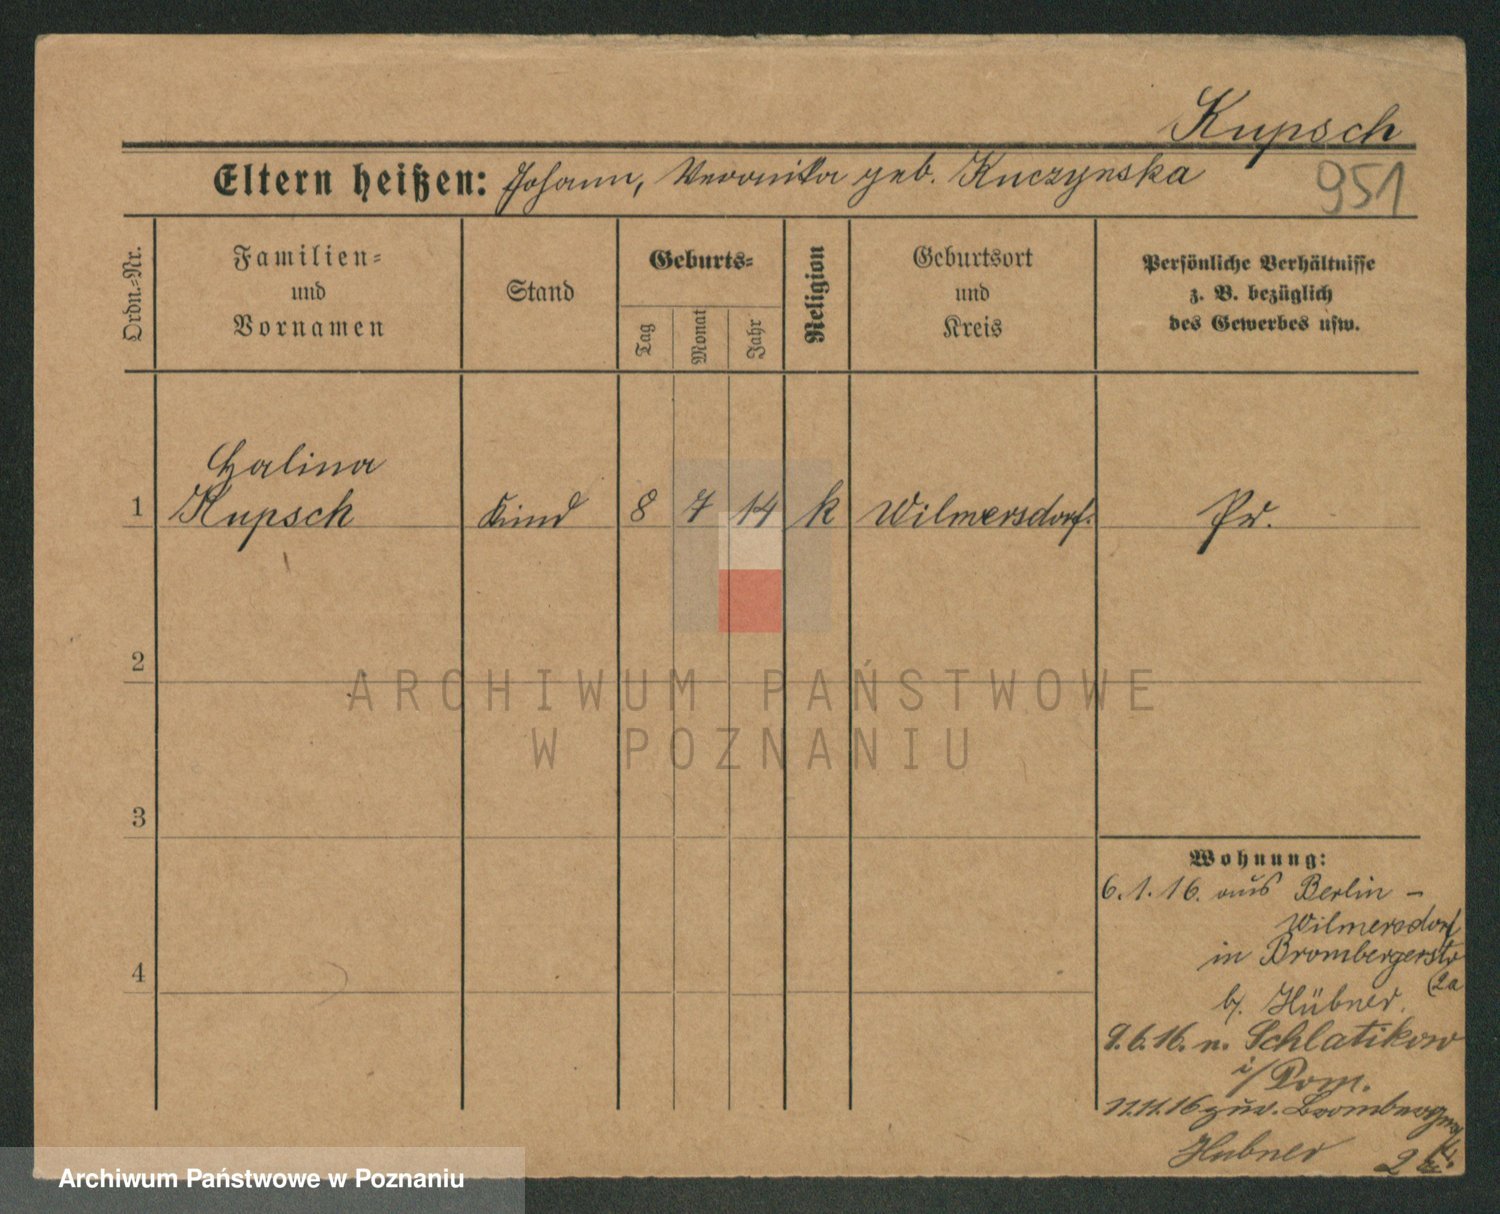 Kupsch
Eltern heißen: Johann, Veronika geb. Kuczynska
951
Ordn.-Nr.
Familien-
und
Vornamen
Stand
Geburts-
Tag
Monat
Jahr
Religion
Geburtsort
und
Kreis
Persönliche Verhältnisse
z. B. bezüglich
des Gewerbes usw.
Halina
1 Kupsch Kind 8 7 14 k Wilmersdorf. Pr.
2
ARCHIWUM PAŃSTWOWE
W POZNANIU
3
Wohnung:
6.1.16. aus Berlin -
Wilmersdorf
in Brombergerstr
(2a
4
b/. Hübner.
9.6.16. n. Schlatikow
i/Pom.
11.11.16 zur. Bromberger
Hubner 2
Archiwum Państwowe w Poznaniu